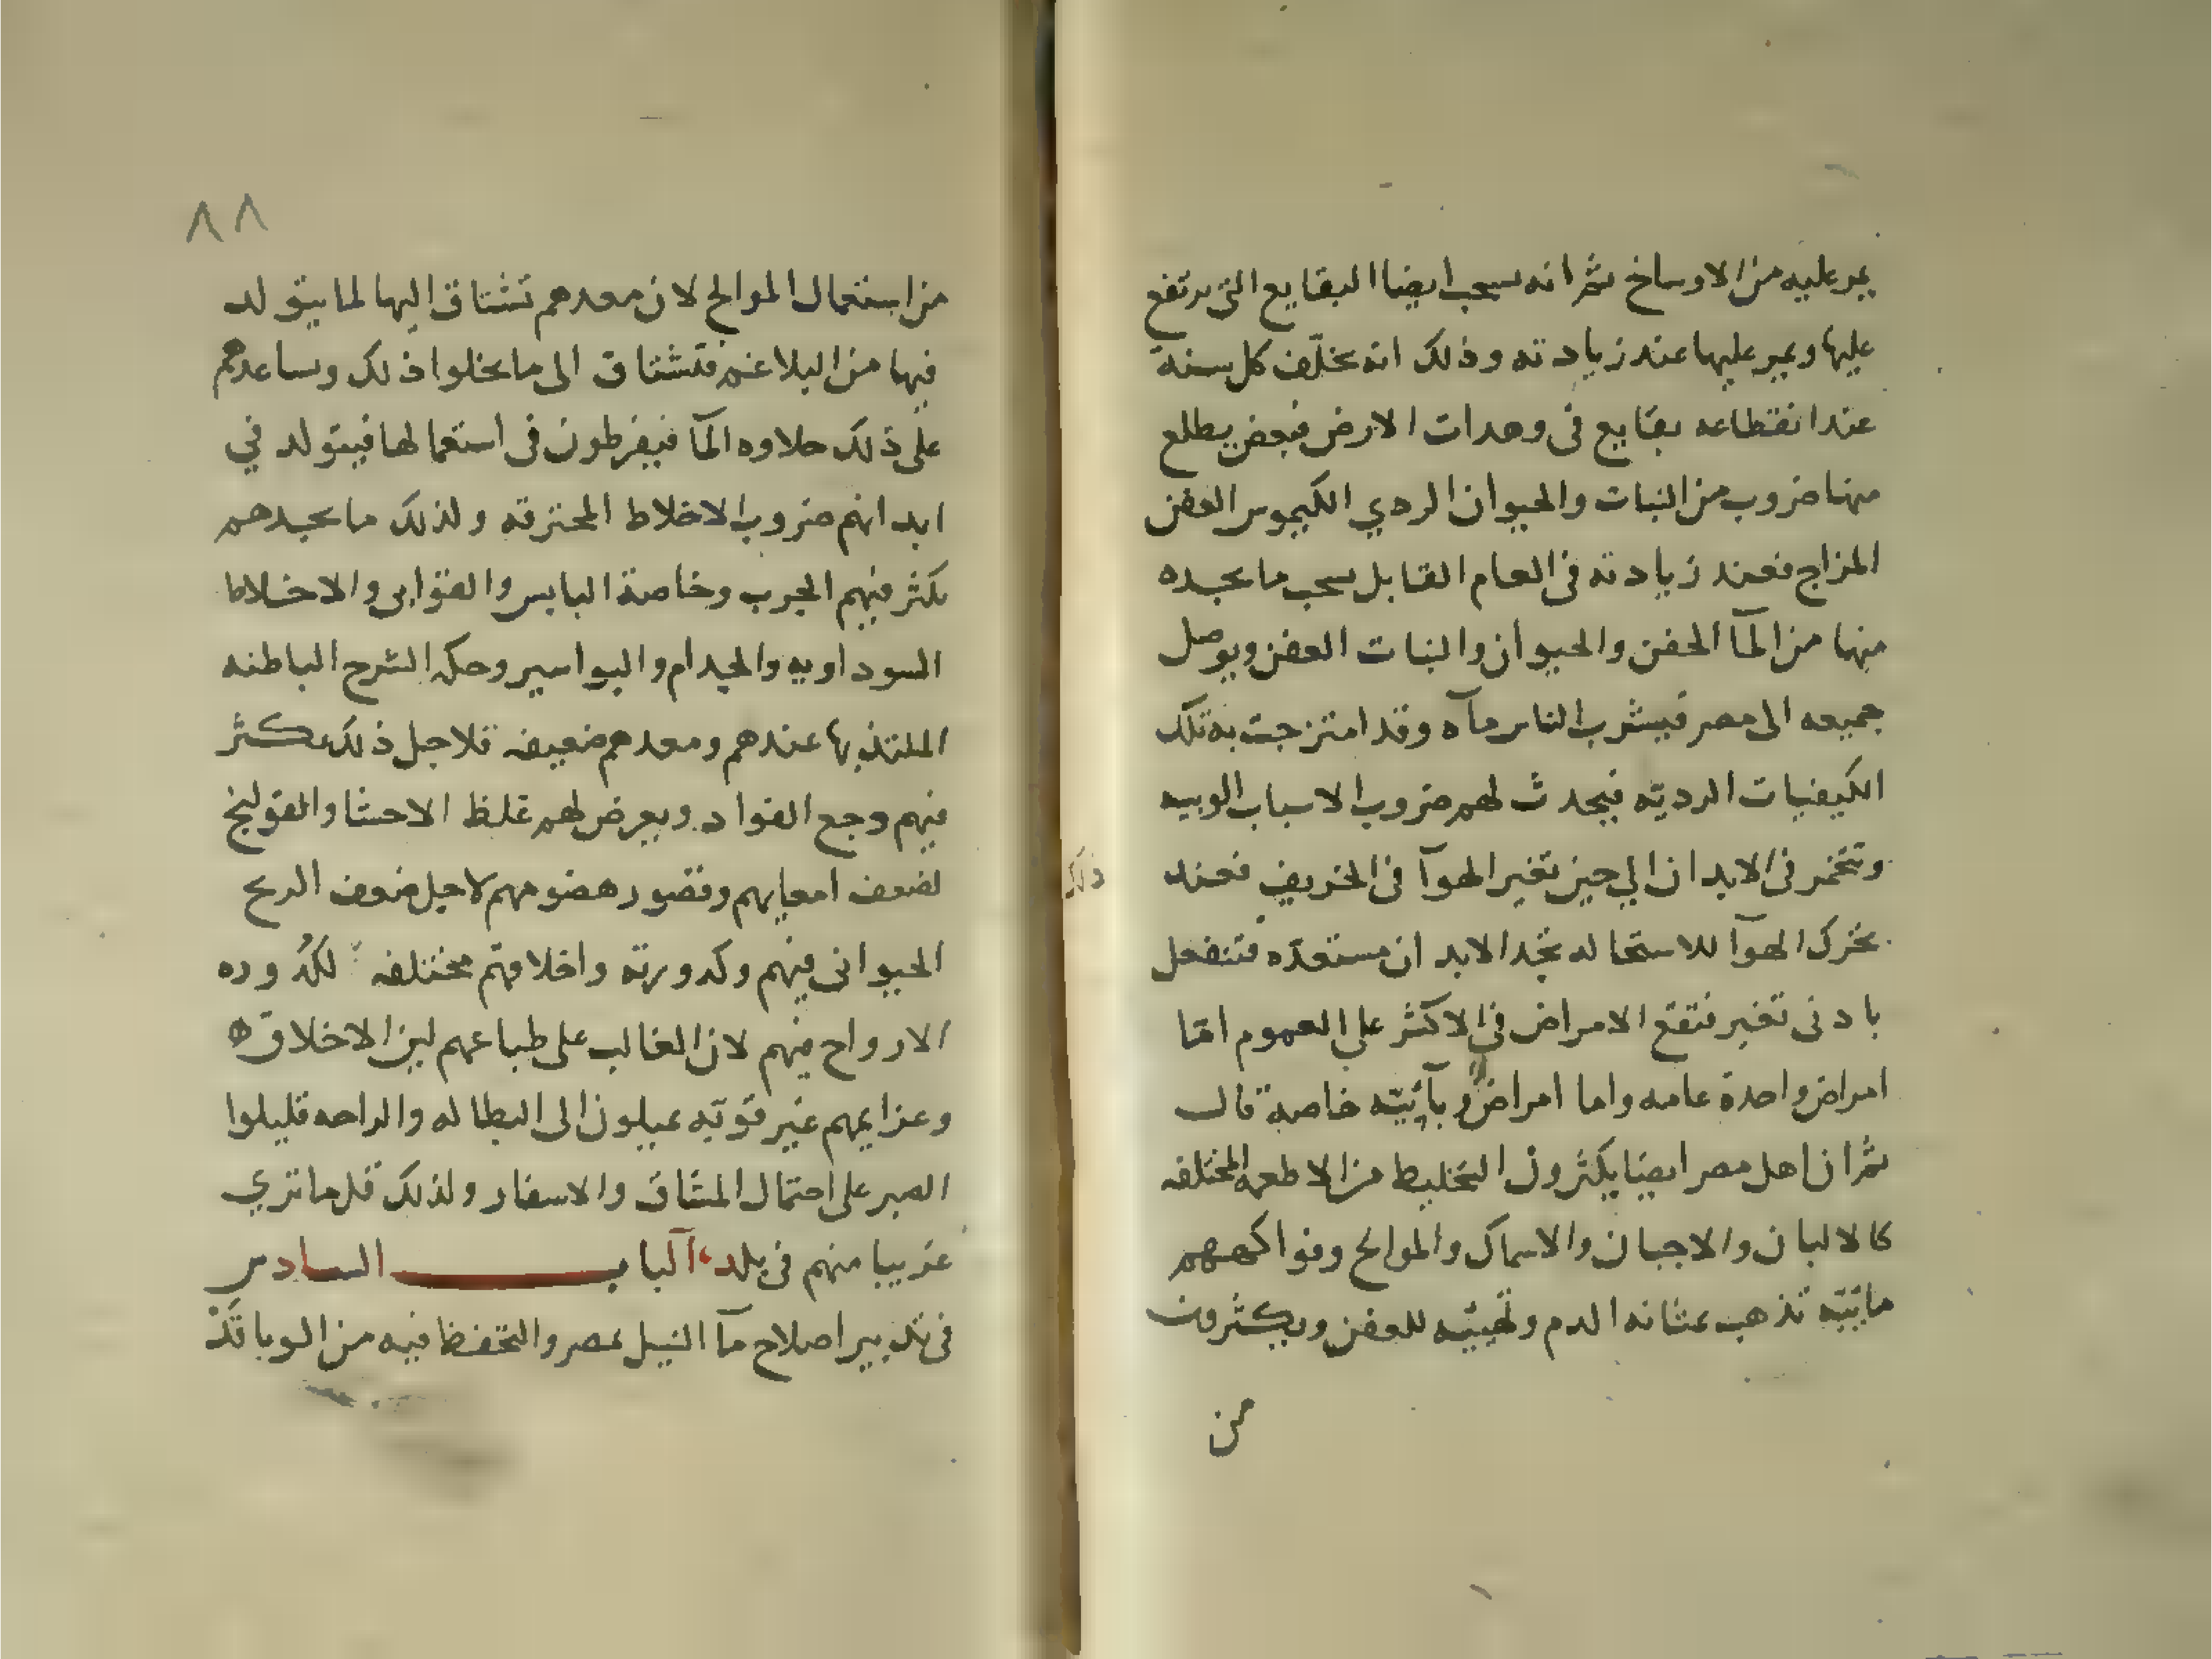 يمر عليه من الاوساخ ثم انه يسحب ايضا البقايع التى يرتفع
عليها ويمر عليها عند زيادته وذلك انه يخلّف كل سنة
عند انقطاعه بقايع فى وهدات الارض فبعض يطلع
منها ضروب من النبات والحيوان الردي الكيموس العفن
المزاج فعند زيادته فى العام القابل يسحب ما يجده
منها من المآ الحفن والحيوان والنبات العفن ويوصل
جميعه الى مصر فيشرب الناس مآه وقد امتزجت به تلك
الكيفيات الرديّه فيحدث لهم ضروب الاسباب الوبيه
وتتخمر فى الابدان الي حين تغير الهوآ فى الخريف فعند ذلك
تحرك الهوآ للاستحاله تجد الابدان مستعدّه فتنفعل
بادنى تغير فتقع الامراض فى الاكثر علي العموم امّا
امراض واحدة عامه واما امراض وبآئيّه خاصة قال
ثم ان اهل مصر ايضا يكثرون التخليط من الاطعمه المختلفه
كالالبان والاجبان والاسماك والموالح وفواكههم
مائيّه تذهب بمثانه الدم وتهيّيه للعفن ويكثرون
من
٨٨
من استعمال الموالح لان معدهم تشتاق اليها لما يتولد
فيها من البلاغم فتشتاق الى ما يخلوا ذلك وساعدهم
على ذلك حلاوه المآ فيفرطون فى استعمالها فيتولد في
ابدانهم ضروب الاخلاط المحترقه ولذلك ما يجدهم
يكثر فيهم الجرب وخاصة اليابس والقوابى والاخلاط
السوداويه والجدام والبواسير وحكه الشرج الباطنه
الملتذ بها عندهم ومعدهم ضعيفه فلاجل ذلك يكثر
فيهم وجع الفواد ويعرض لهم غلظ الاحشا والقولنج
لضعف امعايهم وقصور هضومهم لاجل ضعف الريح
الحيوانى فيهم وكدورته واخلاقهم مختلفه لكدوره
الارواح فيهم لان الغالب على طباعهم لين الاخلاق ه
وعزايمهم غير قويّه يميلون الى البطاله والراحه قليلوا
الصبر على احتمال المشاق والاسفار ولذلك قل ما تري
غريبا منهم فى بلد آلباب السادس
فى تدبير اصلاح مآ النيل بمصر والتحفظ فيه من الوبا قد